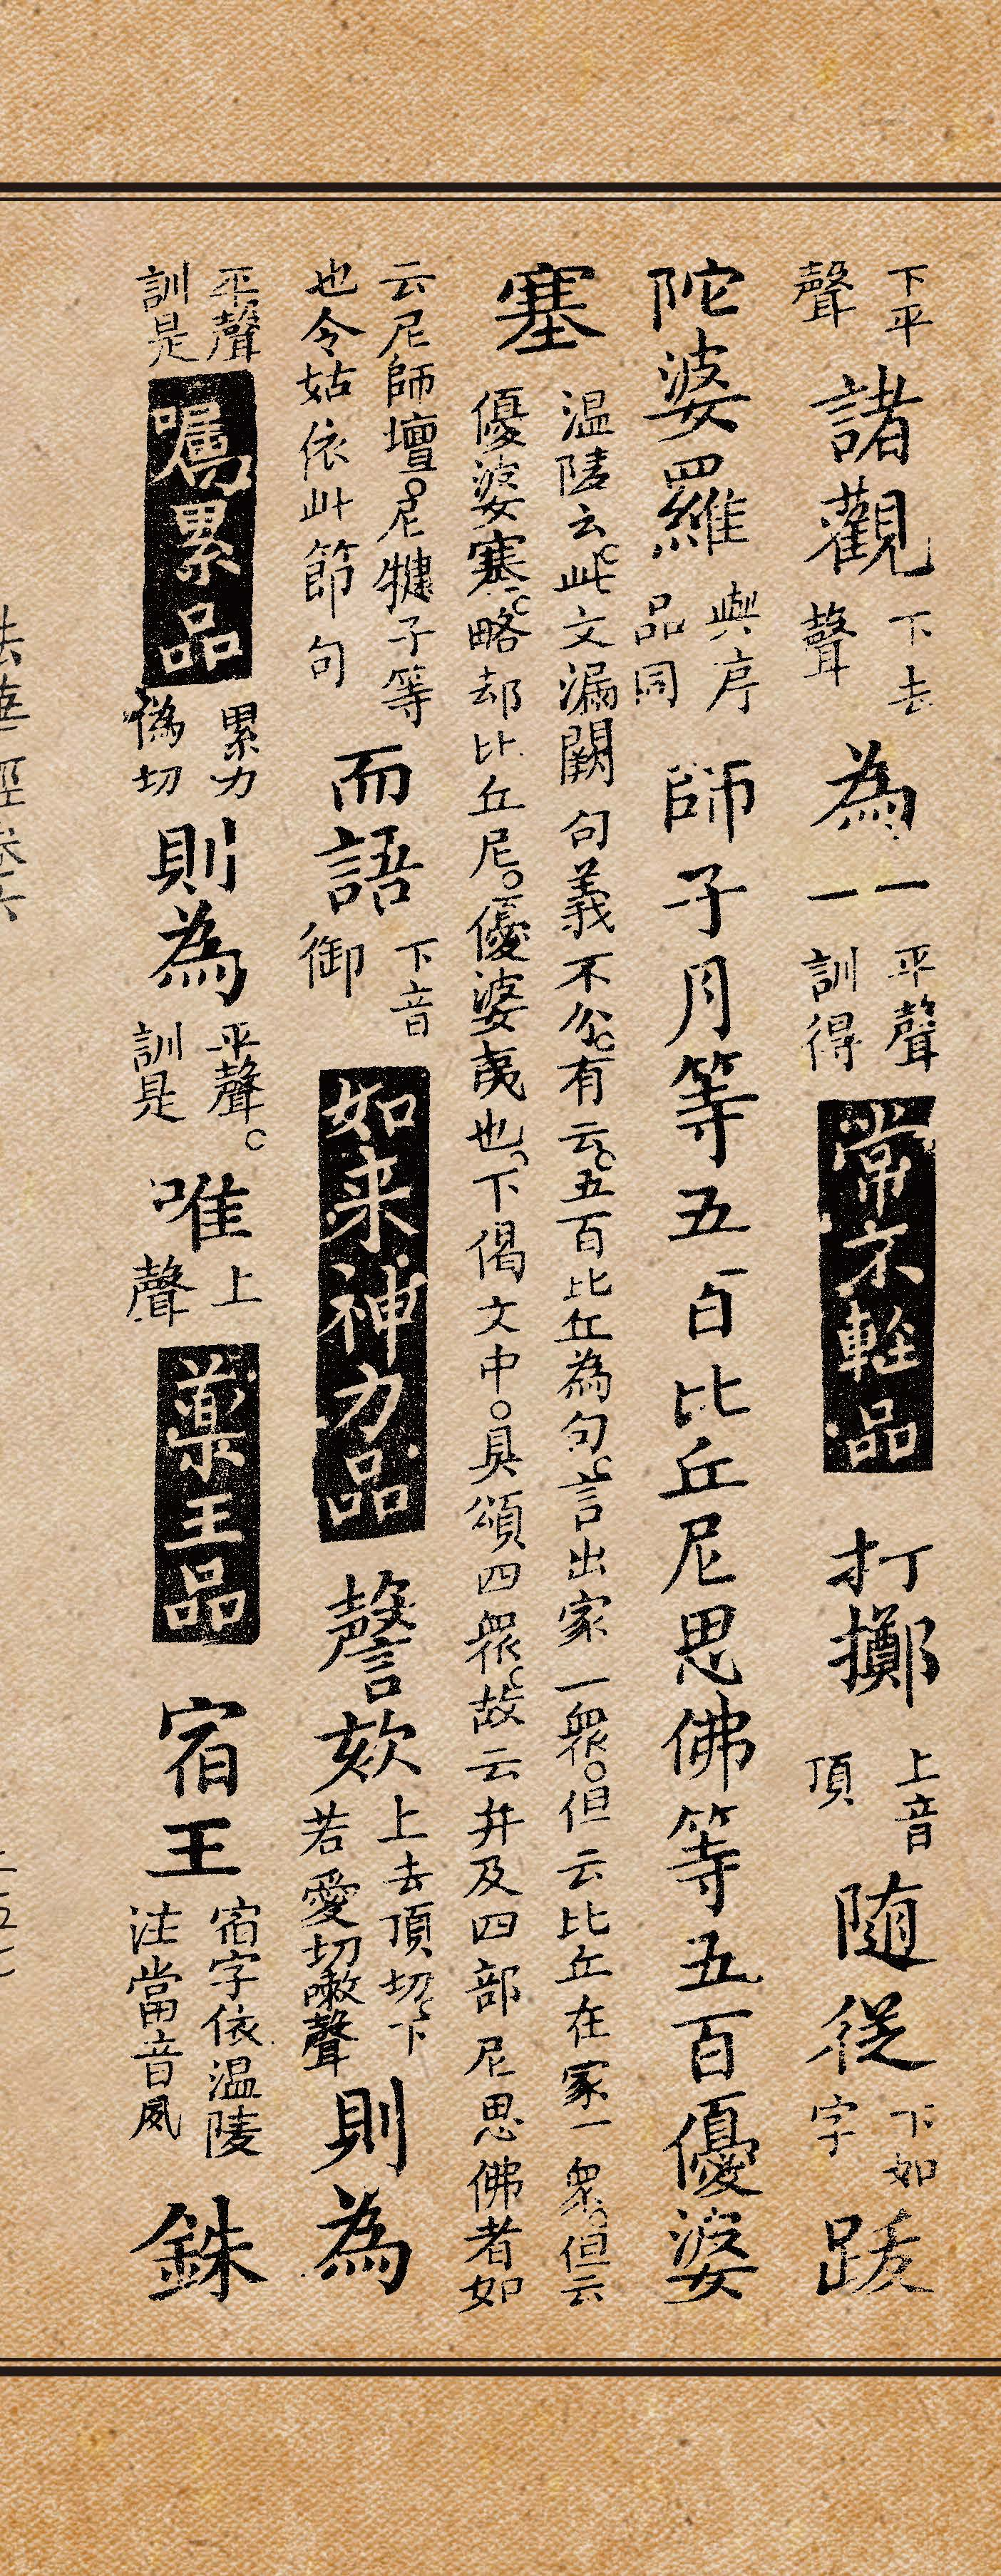 下平聲 諸觀 下去聲 為一一 平聲訓得 常不軽品 打擲 上音頂 随從 下如字 跋
陀婆羅 與序品同 師子月等五百比丘尼思佛等五百優婆
塞 温陵云此文漏闕句義不分有云五百比丘為句言出家一衆但云比丘在家一衆但云
優婆塞略却比丘尼優婆夷也下偈文中具頌四衆故云并及四部尼思佛者如
云尼師壇尼犍子等也令姑依此節句 而語 下音御 如来神力品 謦欬 上去頂切下若愛切嗽聲 則為
平聲訓是 嘱累品 累力偽切 則為 平聲訓是 唯 上聲 薬王品 宿王 宿字依温陵注當音夙 銖
法華經卷六